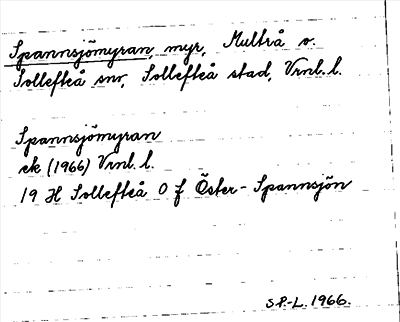 Spannsjömyran, myr, Multrå o.
Sollefteå snr, Sollefteå stad, Vrnl. l.
Spannsjömyran
ek (1966) Vrnl. l.
19 H Sollefteå 0 f Öster-Spannsjön
S.P.-L. 1966.